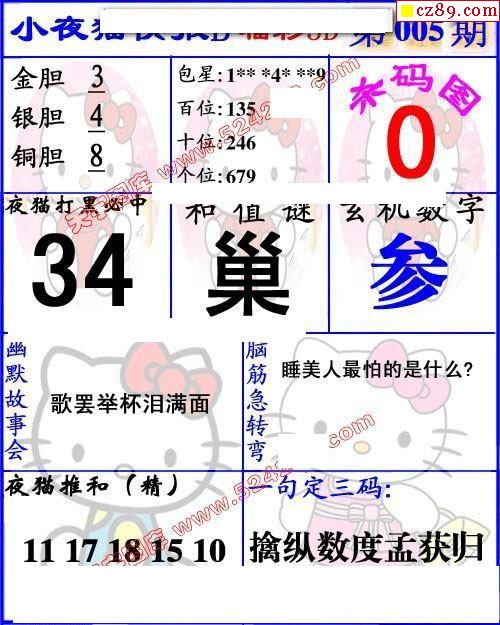 cz89.com
小夜猫快报D 福彩3D 第005期
金胆 3
银胆 4
铜胆 8
包星:1** *4* **9
百位:135
十位:246
个位:679
杀码图
0
夜猫打黑必中
34
和值谜
巢
玄机数字
参
幽默故事会
歌罢举杯泪满面
脑筋急转弯
睡美人最怕的是什么?
夜猫推和(精)
11 17 18 15 10
一句定三码:
擒纵数度孟获归
天宇图库 www.5242
.com
天宇图库 www.5242
.com